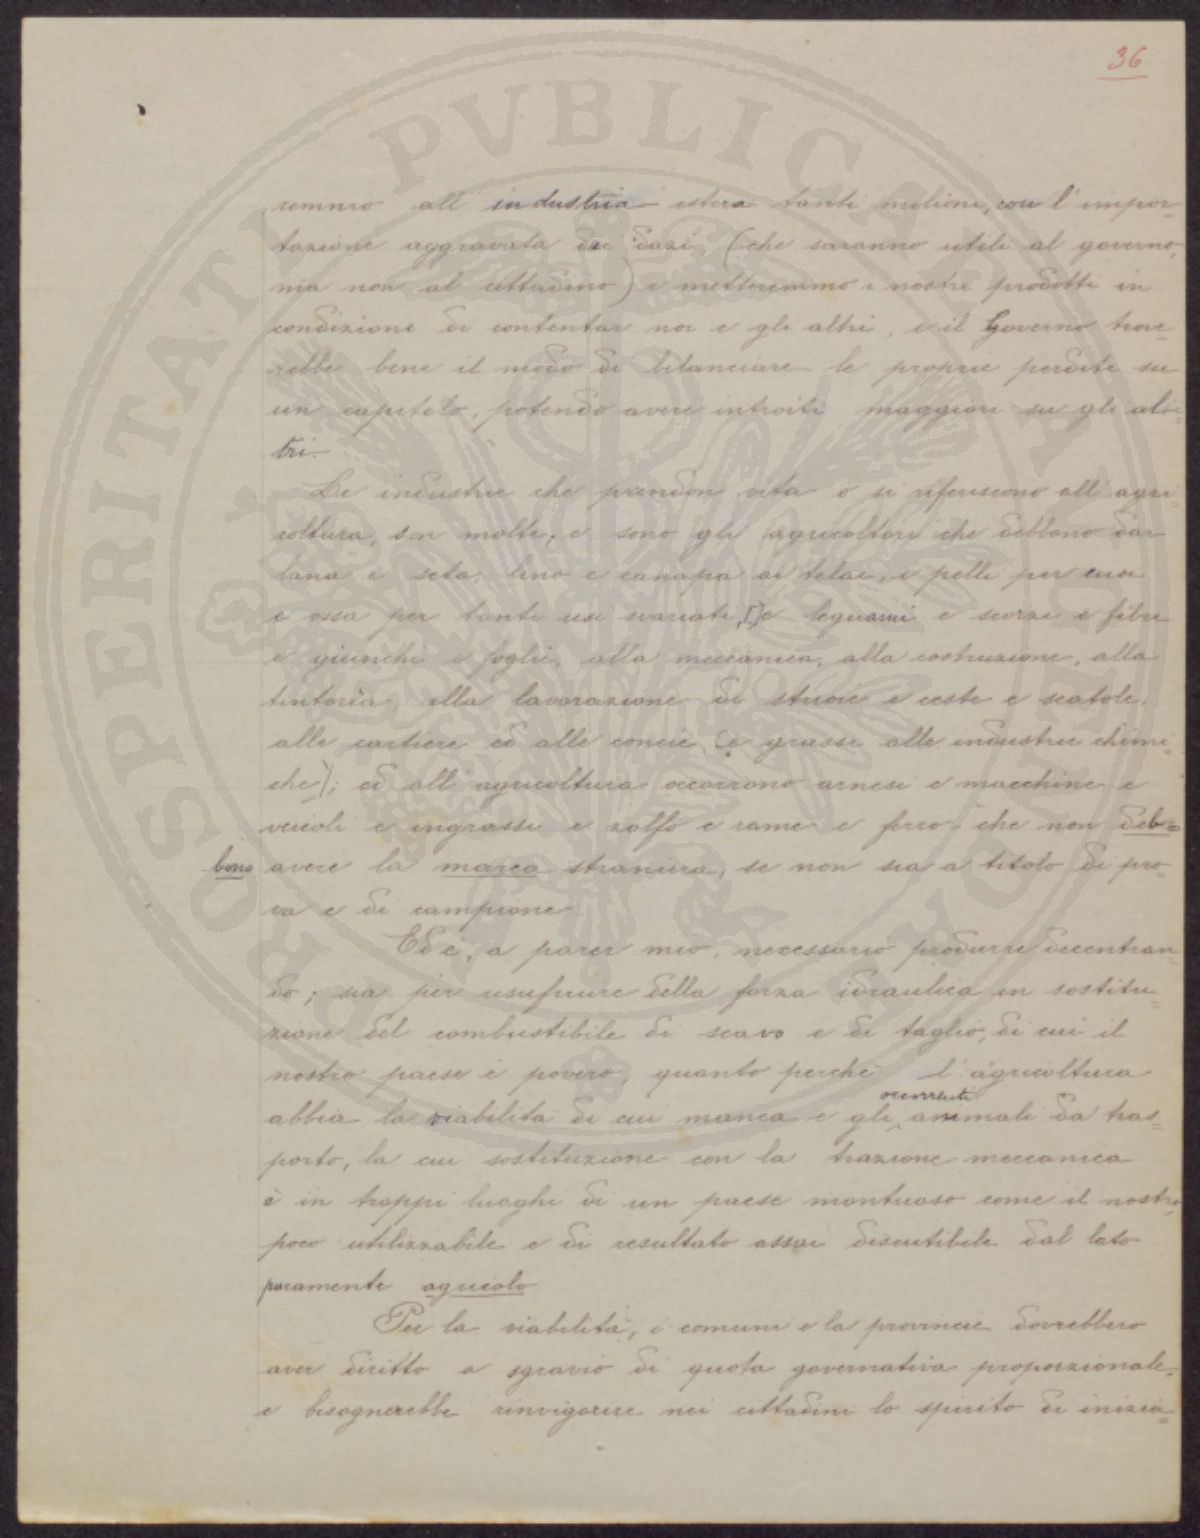 36
remmo all' industria estera tanti milioni, con l'impor=
tazione aggravata dai dazi, (che saranno utili al governo,
ma non al cittadino) e metteremmo i nostri prodotti in
condizione di contentar noi e gli altri, e il Governo trove=
rebbe bene il modo di bilanciare le proprie perdite su
un capitolo, potendo avere introiti maggiori su gli al=
tri.
Le industrie che prendon vita o si riferiscono all'agri=
coltura, son molte, e sono gli agricoltori che debbono dar
lana e seta, lino e canapa ai telai, e pelli per cuoi
e ossa per tanti usi svariati, [] e legnami e scorze e fibre
e giunchi e foglie, alla meccanica, alla costruzione, alla
tintoria alla lavorazione di stuoie e ceste e scatole,
alle cartiere ed alle concie, (e grassi alle industrie chimi=
che); ed all' agricoltura occorrono arnesi e macchine e
veicoli e ingrassi e zolfo e rame e ferro che non deb=
bono avere la marca straniera, se non sia a titolo di pro=
va e di campione
Ed è, a parer mio, necessario produrre decentran=
do; sia per usufruire della forza idraulica in sostitu=
zione del combustibile di scavo e di taglio, di cui il
nostro paese è povero, quanto perchè l'agricoltura
abbia la viabilità di cui manca e gli occorrenti animali da tras=
porto, la cui sostituzione con la trazione meccanica
è in troppi luoghi di un paese montuoso come il nostro,
poco utilizzabile e di resultato assai discutibile dal lato
puramente agricolo
Per la viabilità, i comuni e la provincie dovrebbero
aver diritto a sgravio di quota governativa proporzionale,
e bisognerebbe rinvigorire nei cittadini lo spirito di inizia=
PROSPERITATI PUBLICAE